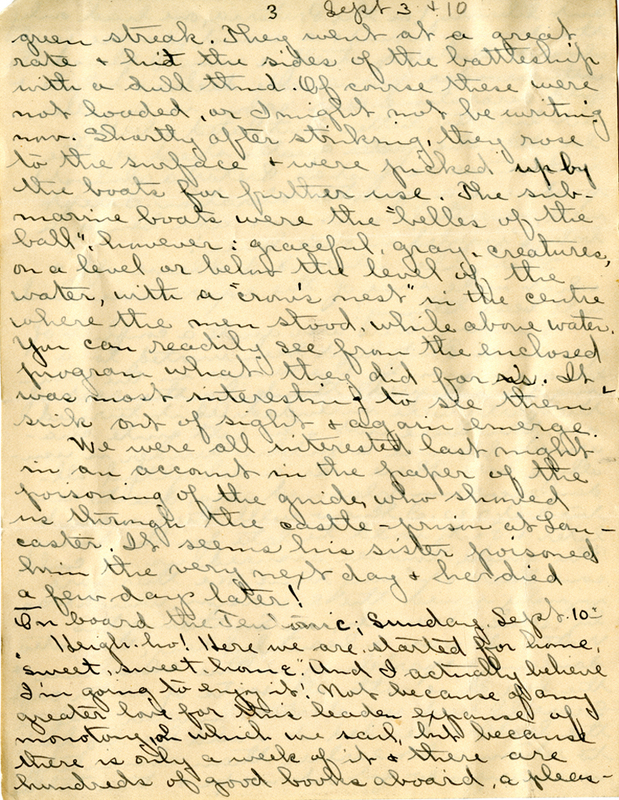 3 Sept 3 & 10
green streak. They went at a great
rate & hit the sides of the battleship
with a dull thud. Of course these were
not loaded, or I might not be writing
now. Shortly after striking, they rose
to the surface & were picked up by
the boats for further use. The sub-
marine boats were the "belles of the
ball", however: graceful, gray, creatures,
on a level or below the level of the
water, with a "crow's nest" in the centre
where the men stood, while above water.
You can readily see from the enclosed
program what they did for us. It
was most interesting to see them
sink out of sight & again emerge.
We were all interested last night
in an account in the paper of the
poisoning of the guide, who showed
us through the castle-prison at Lan-
caster. It seems his sister poisoned
him the very next day & he died
a few days later!
On board the Teutonic; Sunday, Sept. 10-
Heigh-ho! Here we are, started for home,
"sweet, sweet, home". And I actually believe
I'm going to enjoy it! Not because of any
greater love for this leaden expanse of
monotony, on which we sail, but because
there is only a week of it & there are
hundreds of good books aboard, a pleas-